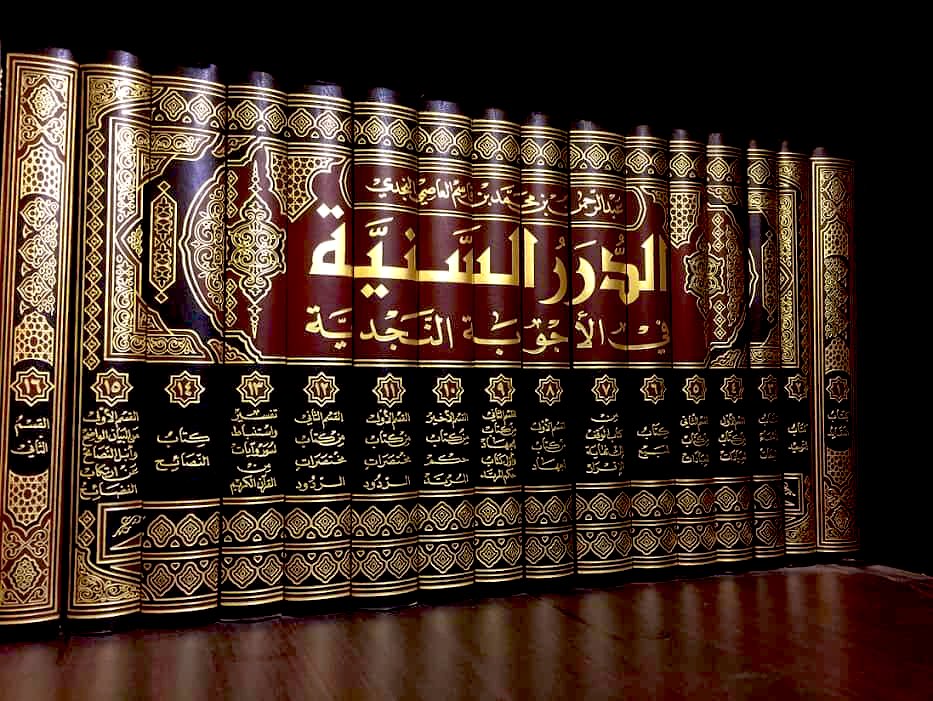 عبد الرحمن بن محمد بن قاسم العاصمي النجدي
الدُّرَرُ السَّنيَّة
في الأجْوبَة النَّجْديَّة
١
٢
كتاب
٣
٤
٥
القسم الثاني
من كتاب
العبادات
٦
كتاب
البيع
٧
من
٨
القسم الأول
من كتاب
الجهاد
٩
القسم الثاني
من كتاب
الجهاد
وأول كتاب
حكم المرتد
١٠
القسم الأخير
من كتاب
حكم
المرتد
١١
القسم الأول
من كتاب
مختصرات
الردود
١٢
القسم الثاني
من كتاب
مختصرات
الردود
١٣
تفسير
واستنباط
لسور وآيات
من
القرآن الكريم
١٤
كتاب
النصائح
١٥
القسم الأول
من البيان الواضح
وأنبل النصائح
عن ارتكاب
الفضائح
١٦
القسم
الثاني